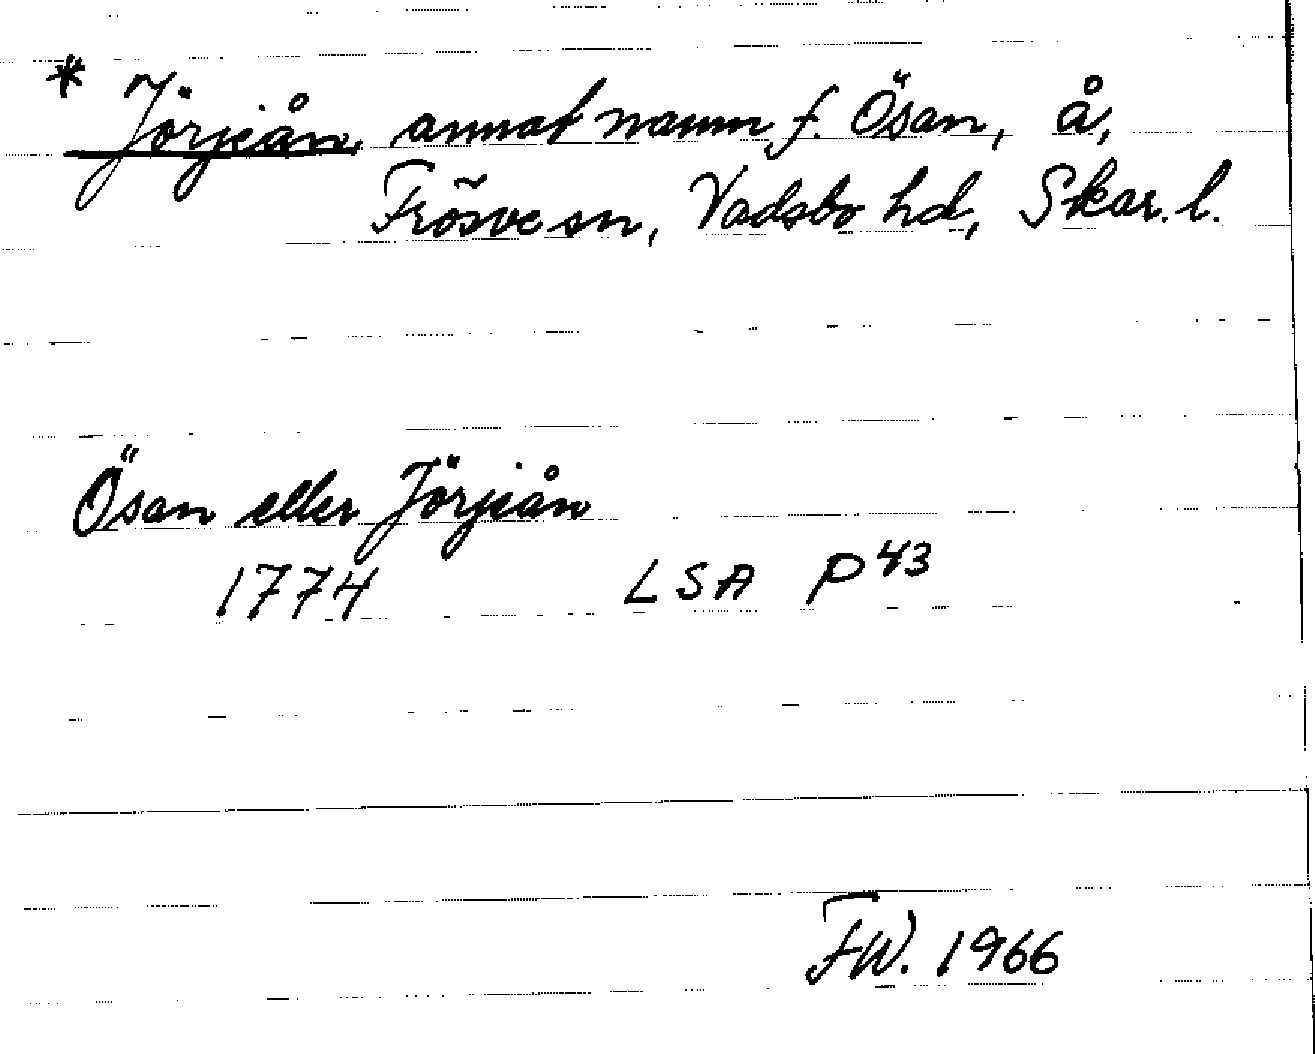 * Jörjeån, annat namn f. Ösan, å,
Frösve sn, Vadsbo hd, Skar. l.
Ösan eller Jörjeån
1774 LSA P 43
FW. 1966